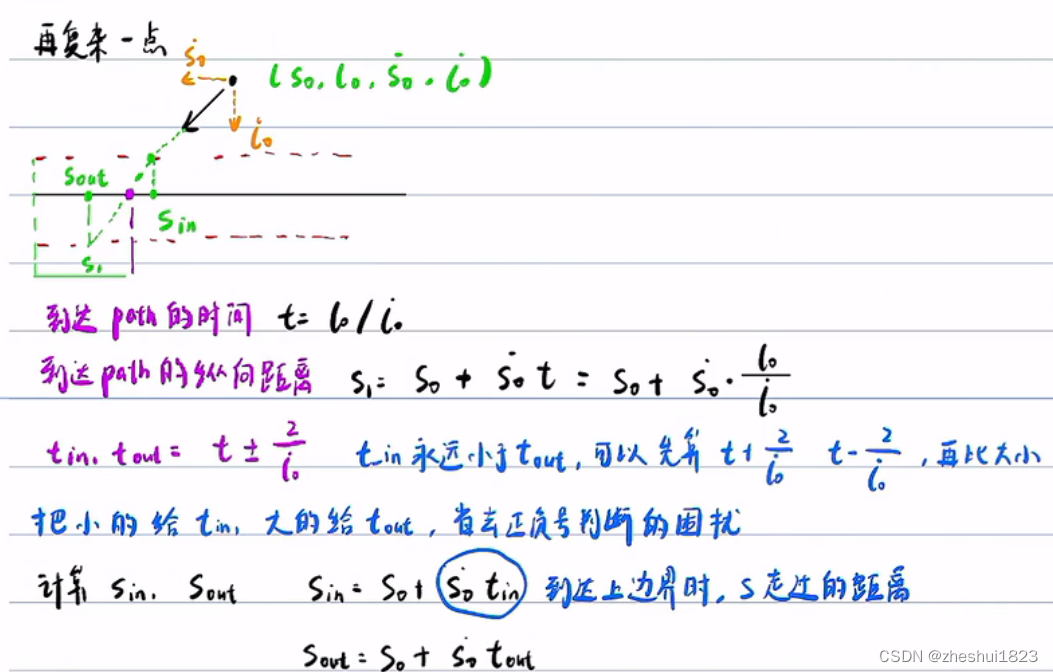 再复杂一点
ṡ₀
(s₀, l₀, ṡ₀, l̇₀)
l̇₀
Sout
Sin
S₁
到达 path 的时间 t = l₀/l̇₀
到达 path 的纵向距离 S₁ = S₀ + ṡ₀ t = S₀ + ṡ₀ · l₀/l̇₀
tin, tout = t ± 2/l̇₀ t_in 永远小于 tout, 可以先算 t + 2/l̇₀ t - 2/l̇₀, 再比大小
把小的给 tin, 大的给 tout, 省去正负号判断的困扰
计算 Sin, Sout Sin = S₀ + ṡ₀ tin 到达上边界时, S走过的距离
Sout = S₀ + ṡ₀ tout
CSDN @zheshui1823